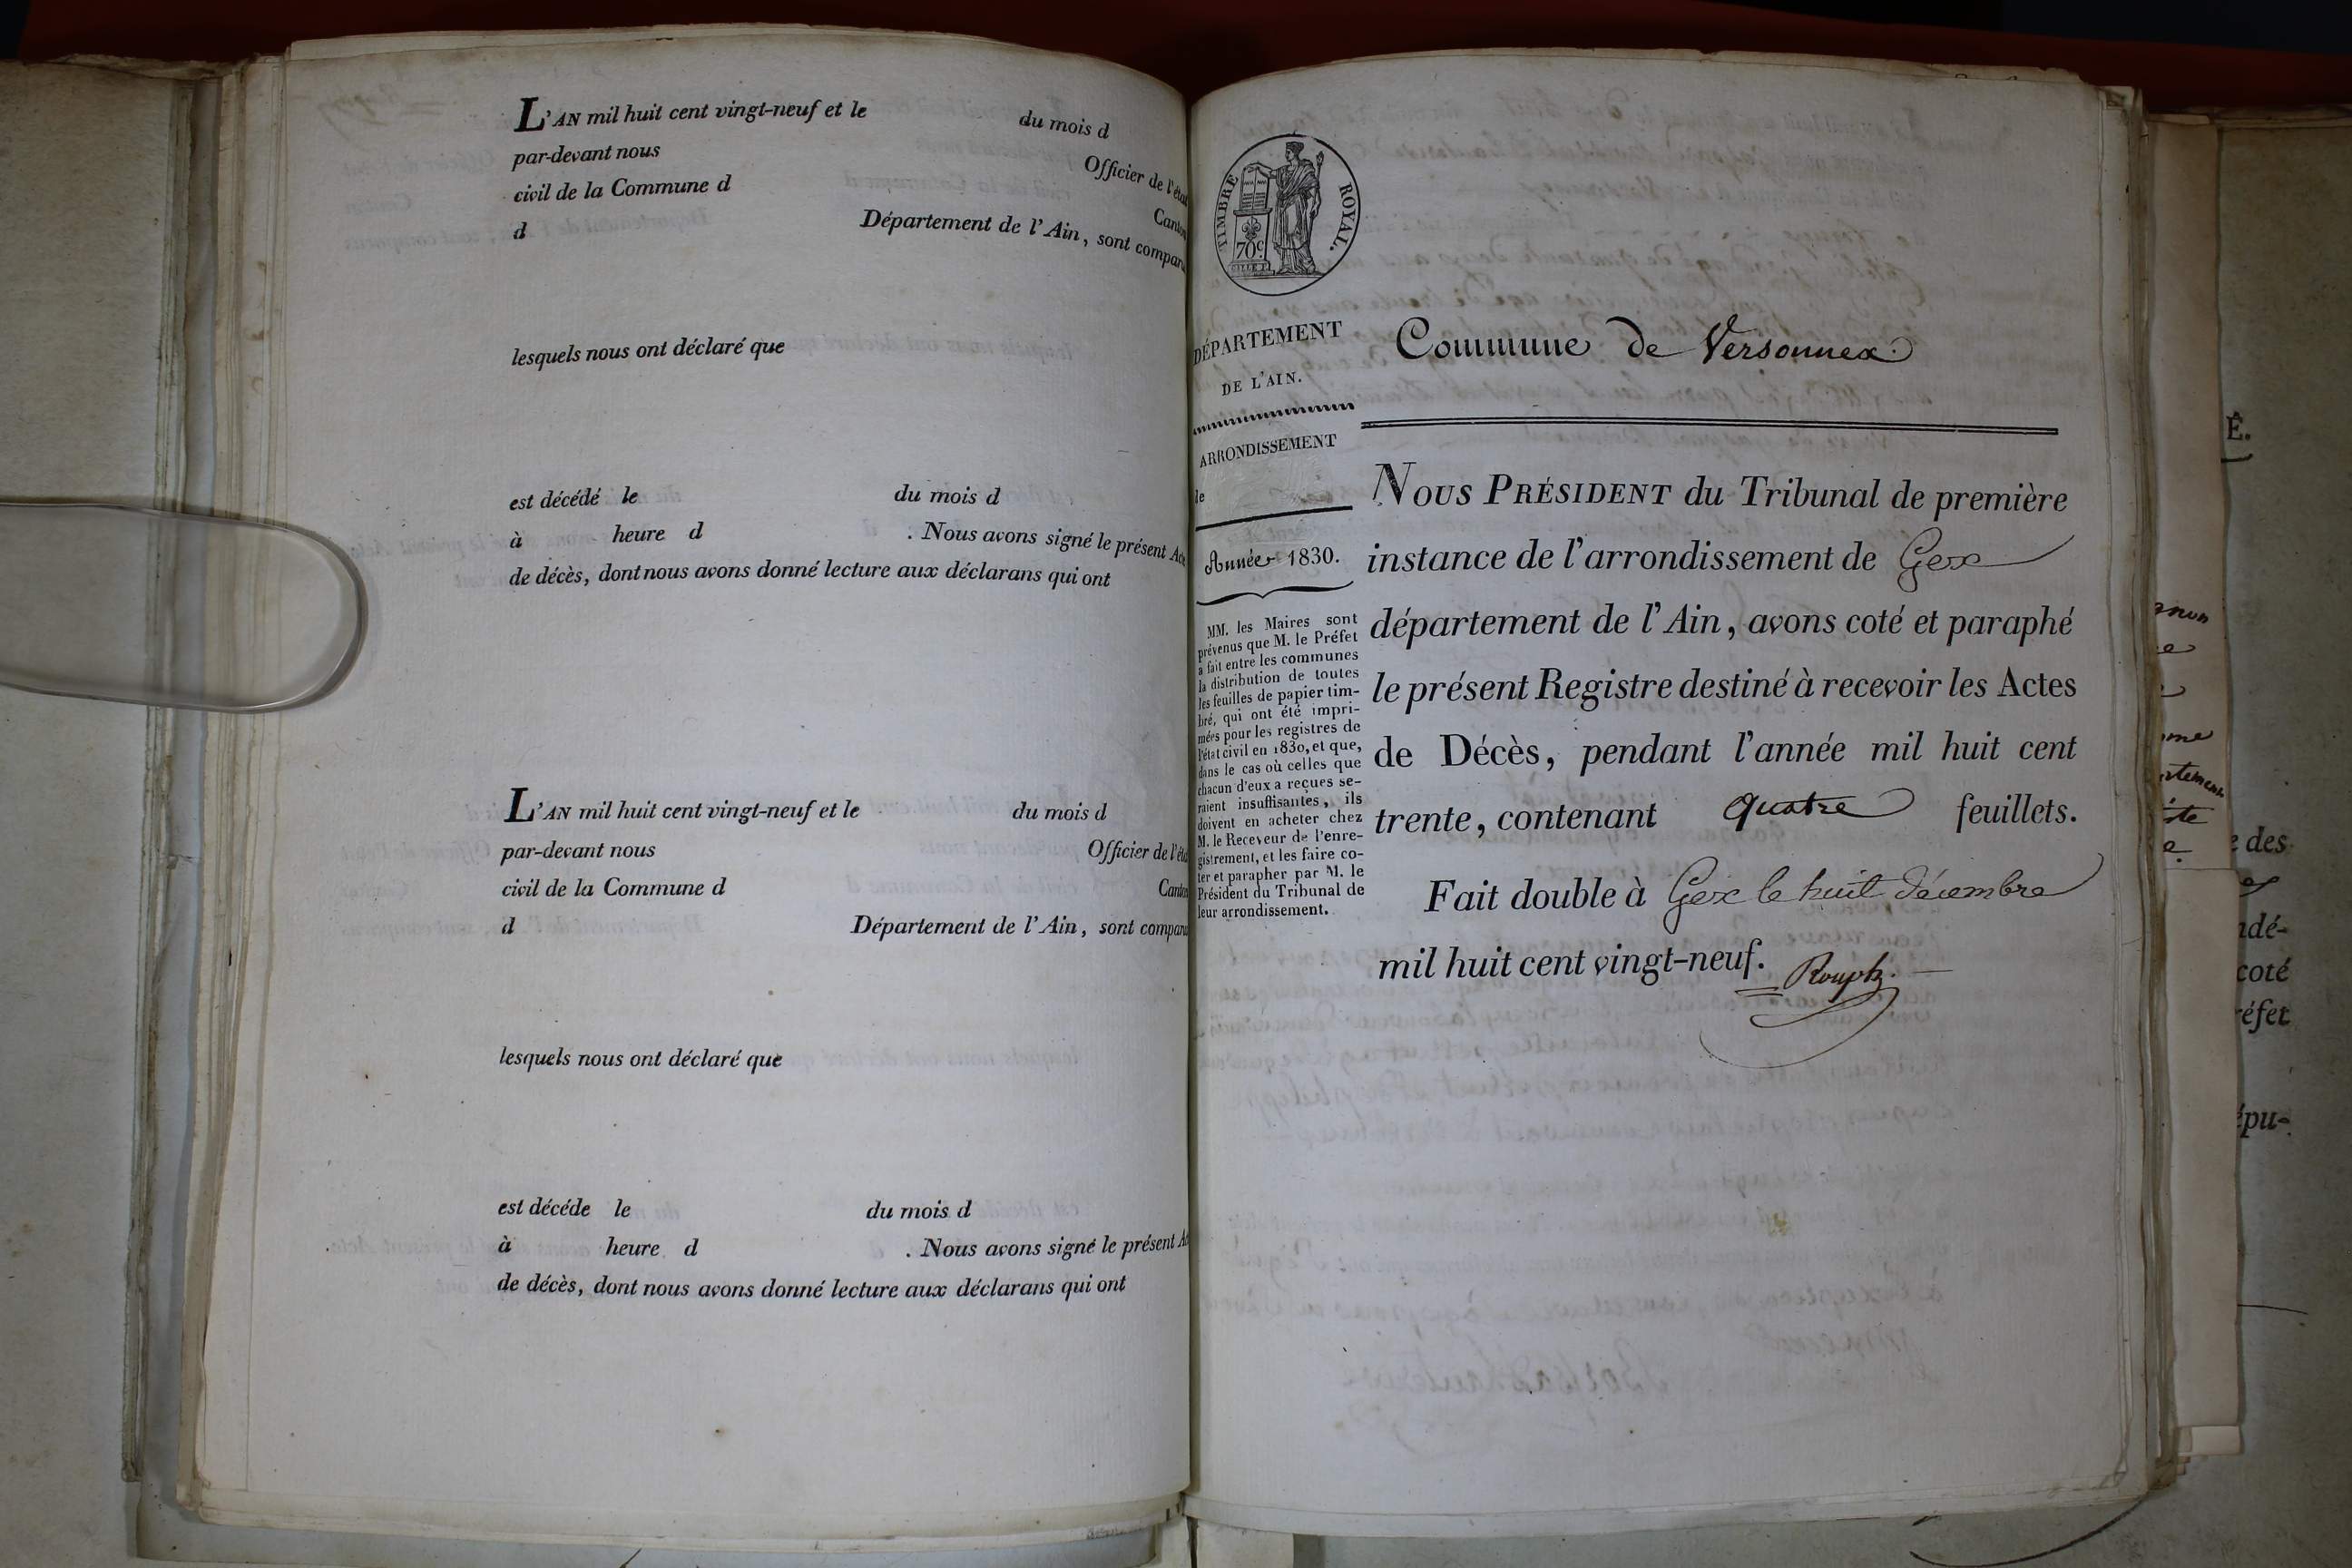 L'AN mil huit cent vingt-neuf et le du mois d
par-devant nous Officier de l'état
civil de la Commune d Canton
d Département de l'Ain, sont comparu
lesquels nous ont déclaré que
est décédé le du mois d
à heure d . Nous avons signé le présent Acte
de décès, dont nous avons donné lecture aux déclarans qui ont
L'AN mil huit cent vingt-neuf et le du mois d
par-devant nous Officier de l'éta
civil de la Commune d Canton
d Département de l'Ain, sont comparu
lesquels nous ont déclaré que
est décéde le du mois d
à heure d . Nous avons signé le présent Ac
de décès, dont nous avons donné lecture aux déclarans qui ont
TIMBRE ROYAL.
70c
DÉPARTEMENT
DE L'AIN.
ARRONDISSEMENT
de
Année 1830.
MM. les Maires sont
prévenus que M. le Préfet
a fait entre les communes
la distribution de toutes
les feuilles de papier tim-
bré, qui ont été impri-
mées pour les registres de
l'état civil en 1830, et que,
dans le cas où celles que
chacun d'eux a reçues se-
raient insuffisantes, ils
doivent en acheter chez
M. le Receveur de l'enre-
gistrement, et les faire co-
ter et parapher par M. le
Président du Tribunal de
leur arrondissement.
Commune de Versonnex.
NOUS PRÉSIDENT du Tribunal de première
instance de l'arrondissement de Gex
département de l'Ain, avons coté et paraphé
le présent Registre destiné à recevoir les Actes
de Décès, pendant l'année mil huit cent
trente, contenant quatre feuillets.
Fait double à Gex le huit décembre
mil huit cent vingt-neuf.
É.
des
coté
épu-